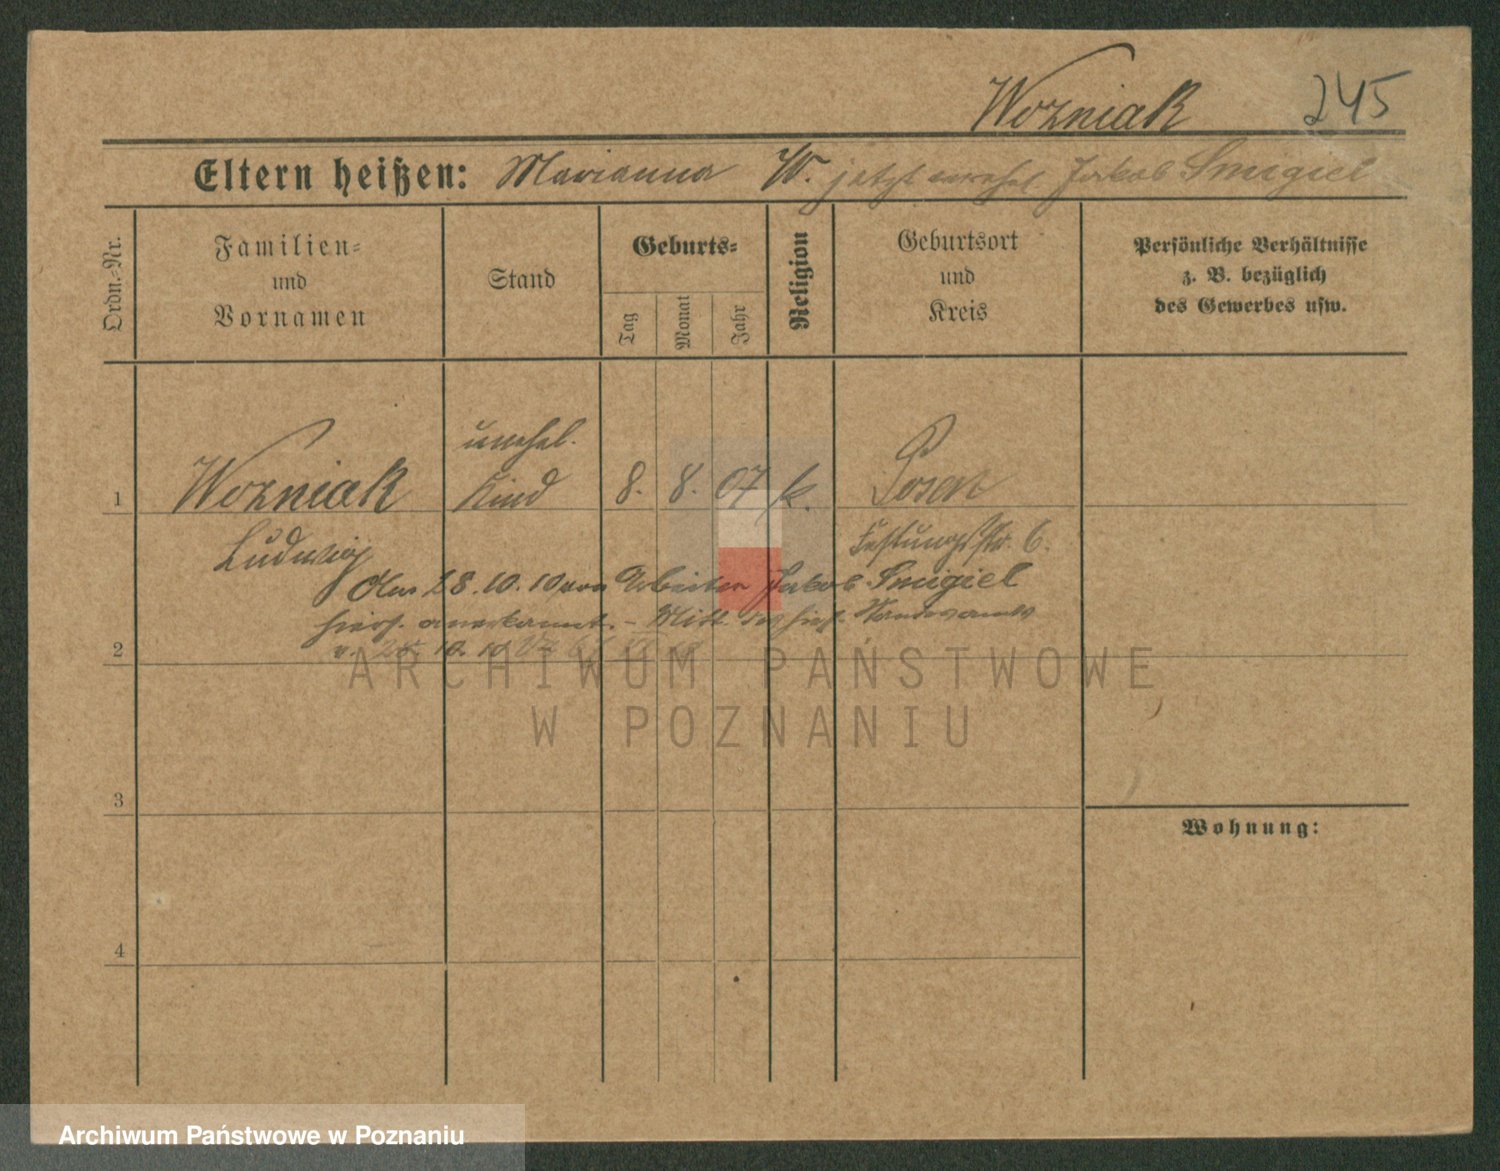 Wozniak 245
Eltern heißen: Marianna W. jetzt verehel. Jakob Smigiel
Ordn.-Nr.
Familien-
und
Vornamen
Stand
Geburts-
Tag
Monat
Jahr
Religion
Geburtsort
und
Kreis
Persönliche Verhältnisse
z. B. bezüglich
des Gewerbes usw.
unehel.
1 Wozniak Kind 8. 8. 07 k. Posen
Ludwig Festungsstr. 6.
Am 28.10.10 von Arbeiter Jakob Smigiel
hiers. anerkannt. - Mitt. des hies. Standesamts
v. 10.10
2
ARCHIWUM PAŃSTWOWE
W POZNANIU
3
Wohnung:
4
Archiwum Państwowe w Poznaniu